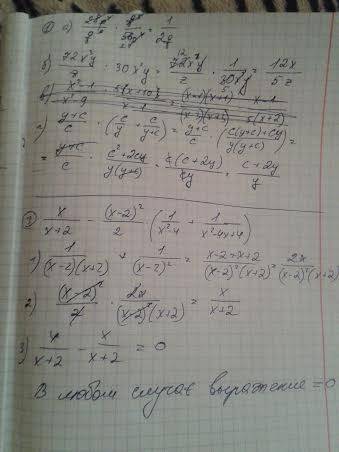 1) а) 28p⁴/q⁸ · q⁵/56p⁴ = 1/2q
б) 72x³y/z : 30x²y = 72x³y/z · 1/30x²y = 12x/5z
г) y+c/c · (c/y + c/y+c) = y+c/c · (c(y+c)+cy)/y(y+c) =
= y+c/c · c²+2cy/y(y+c) = c(c+2y)/cy = c+2y/y
2) x/x+2 - (x-2)²/2 · (1/x²-4 + 1/x²-4x+4)
1) 1/(x-2)(x+2) + 1/(x-2)² = x-2+x+2/(x-2)²(x+2) = 2x/(x-2)²(x+2)
2) (x-2)²/2 · 2x/(x-2)²(x+2) = x/x+2
3) x/x+2 - x/x+2 = 0
В любом случае выражение = 0